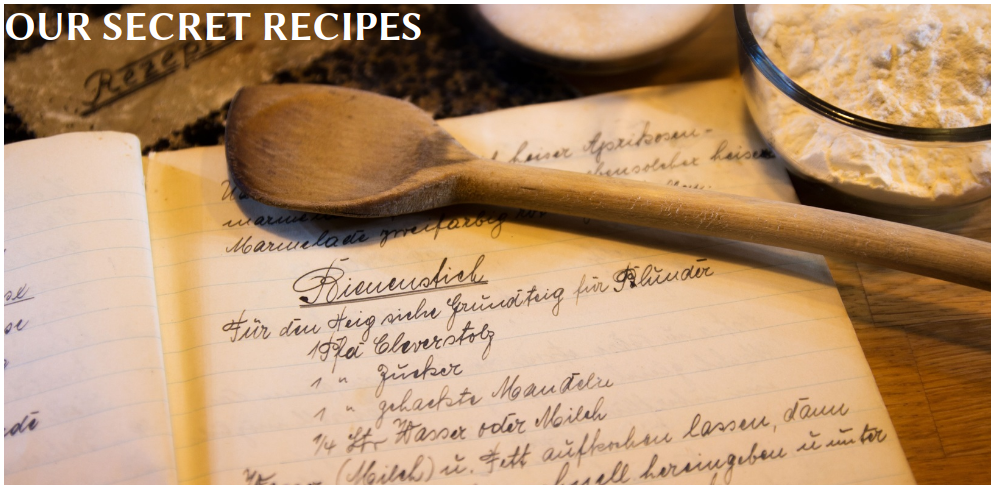 OUR SECRET RECIPES
Rezept
heiser Aprikosen-
heiser
Marmelade zweifarbig
Bienenstich
Für den Teig siehe Grundteig für Plunder
1 Pfd Cleverstolz
1 " Zucker
1 " gehackte Mandeln
1/4 Ltr. Wasser oder Milch
(Milch) u. Fett aufkochen lassen, dann
hereingeben u unter